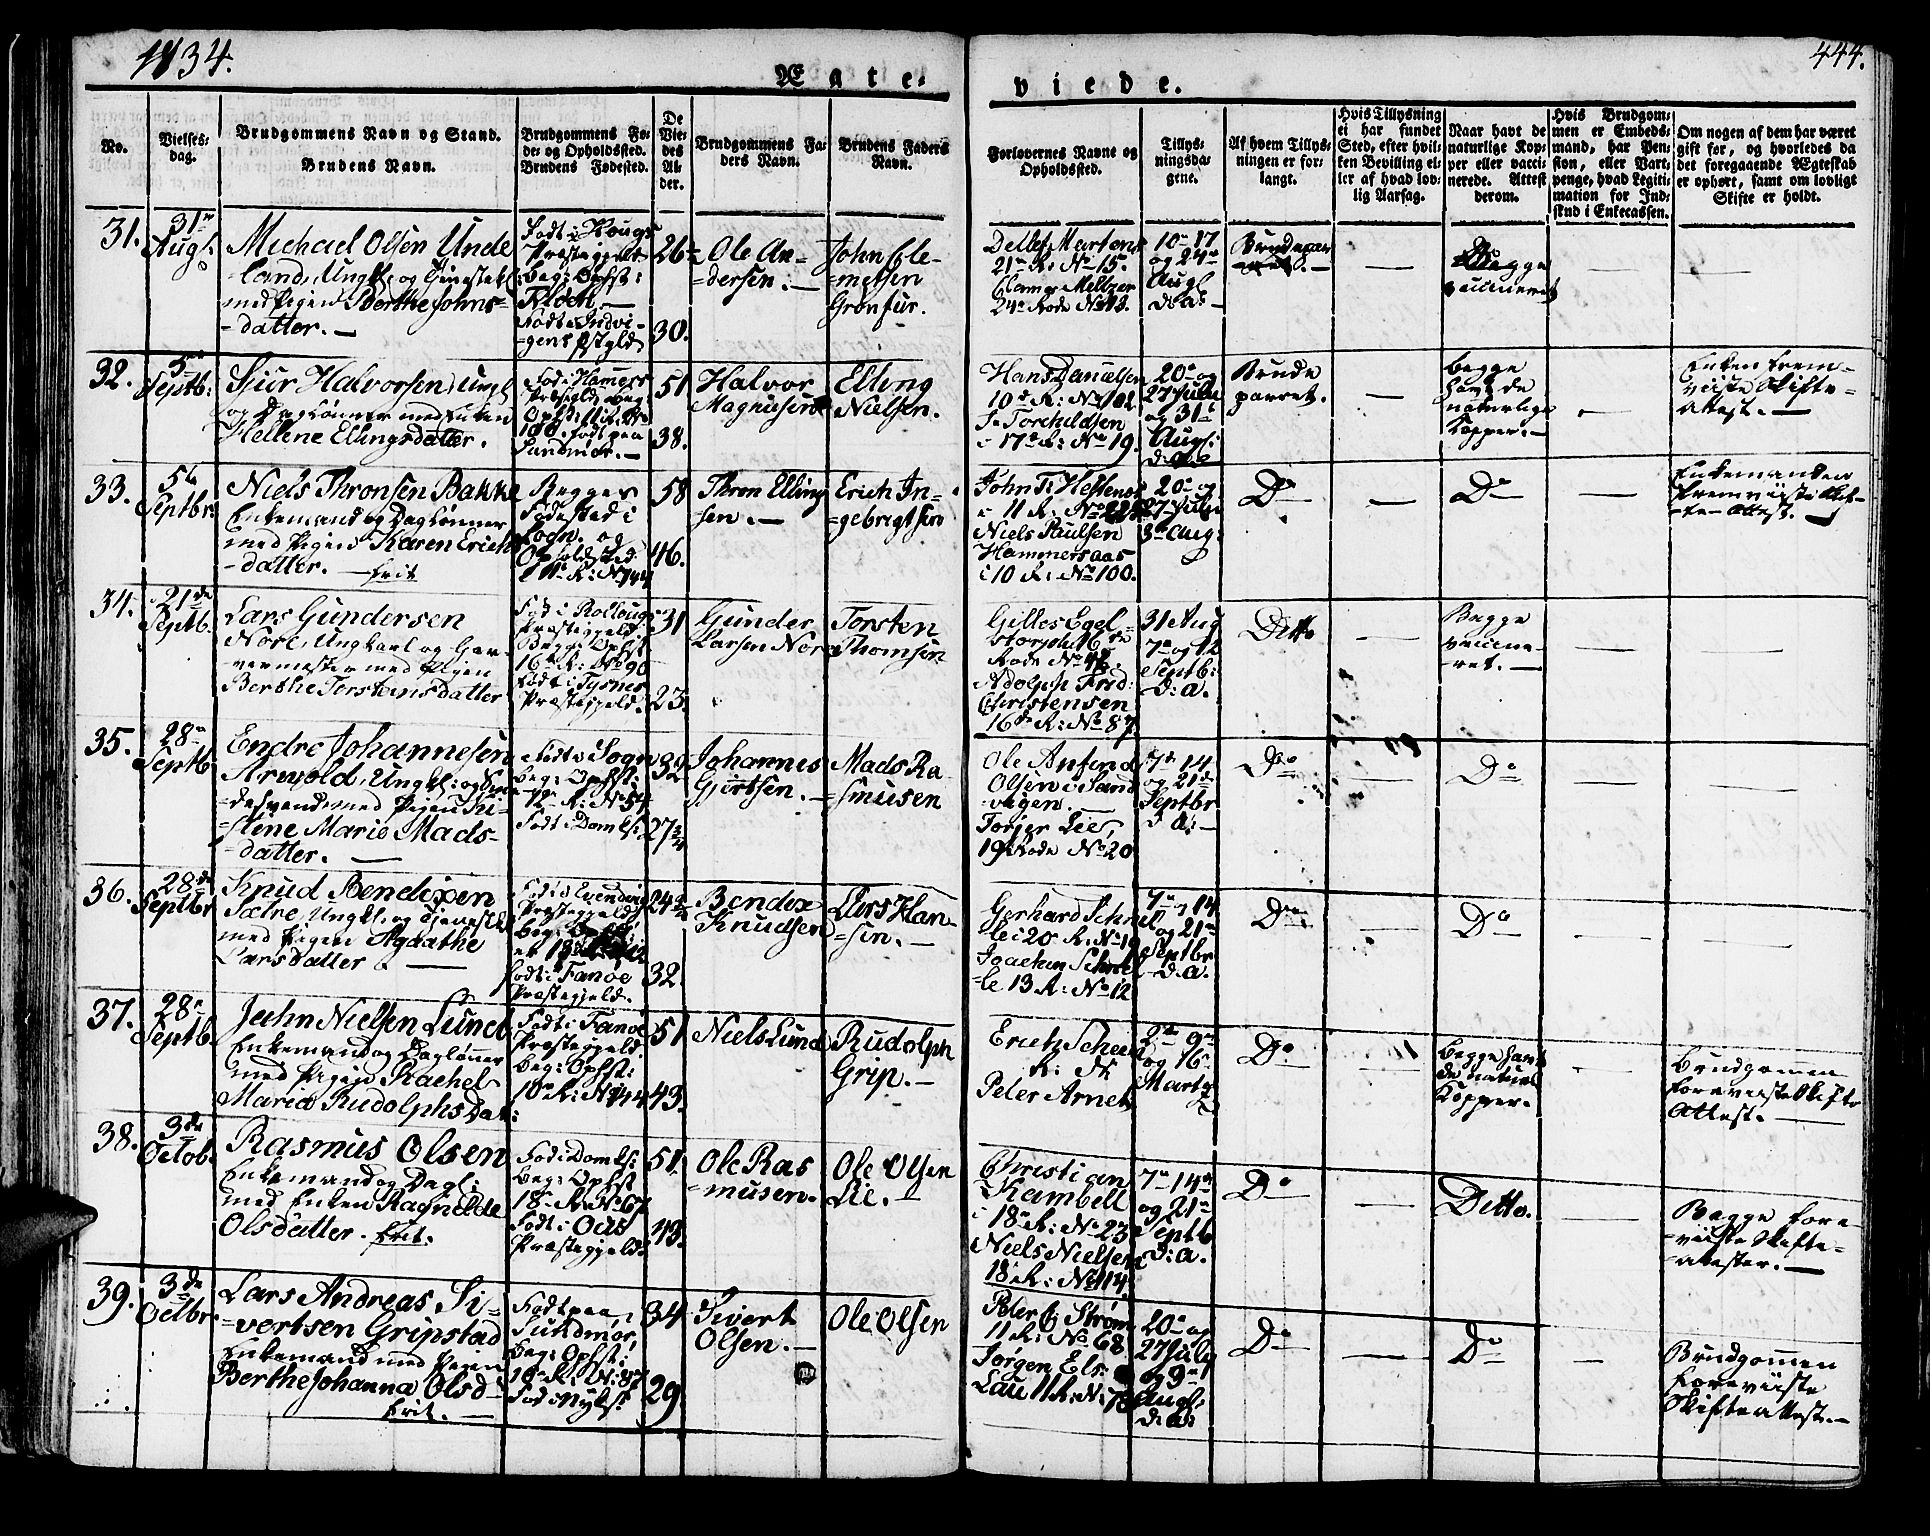 1834.
444.
Ægte-
viede.
No.
Vielses-
dag.
Brudgommens Navn og Stand.
Brudens Navn.
Brudgommens Fø-
de- og Opholdssted.
Brudens Fødested.
De
Vie-
des
Al-
der.
Brudgommens Fa-
ders Navn.
Brudens Faders
Navn.
Forlovernes Navne og
Opholdssted.
Tillys-
ningsda-
gene.
Af hvem Tillys-
ningen er for-
langt.
Hvis Tillysning
ei har fundet
Sted, efter hvil-
ken Bevilling el-
ler af hvad lov-
lig Aarsag.
Naar havt de
naturlige Kop-
per eller vacci-
nerede. Attest
derom.
Hvis Brudgom-
men er Embeds-
mand, har Pen-
sion, eller Vart-
penge, hvad Legiti-
mation for Ind-
skud i Enkecassen.
Om nogen af dem har været
gift før, og hvorledes da
det foregaaende Ægteskab
er ophørt, samt om lovligt
Skifte er holdt.
31.
31te
Augs:
Michael Olsen Unde
-land, Ungk. og Tienestek
med Pigen Berthe Johns-
-datter. —
Født i Houg
Præstegjeld
beg: Ophst:
Født i Indvi-
-gens Pstgld
26
30.
Ole An-
dersen. —
John Cle-
-metsen
Grønfur.
Detlef Martens
21de R: No 15.
Meltzer
24de Rode No 13.
10de 17
og 24de
Augs
d: A:
Brudepar
-ret. —
Begge
vaccineret
32.
5te
Septb:
Siur Halvorsen, Ungk
og Daglønner med Enken
Hellene Ellingsdatter.
Fød i Hammers
Præstgld beg:
100. født paa
Sundmør. —
51
38.
Halvor
Magnusen
Elling
Nielsen.
Hans Danielsen
10de R: No 102
T. Torchildsen
i 17de R: No 19.
20de og
27 Juli
og 31te
Augs:
d: a.
Brude
parret. —
begge
havt de
naturlige
Kopper. —
Enken frem-
viiste Skifte-
Attest. —
33.
5te
Septbr:
Niels Thronsen Bakke
Enkemand og Daglønner
med Pigen Karen Erichs
-datter. — frit
Begges
Fødested i
Sogn. og
Opholdssted
11te R: No 144
58
46.
Thron Elling
sen. —
Erich In-
-gebrigtsen
John T. Hestenes
i 11 R: No 225
Niels Paulsen
Hammersaas
i 10 R: No 100.
20de og
27 Juli
3de Aug:
Do
Do
Enkemanden
fremviiste Skif-
te-Attest. —
34.
21de
Septb.
Lars Gundersen
Nore, Ungkarl og Gar-
vermester med Pigen
Berthe Torsteinsdatter
Født i Rollougs
Præstegjeld
Begge Ophst
16de R: No 90
født i Tysnes
Præstegjeld.
31
23.
Gunder
Larsen Nore
Torsten
Thomsen
Gilles Egel-
storph 16de
Rode No
Adolph Frid:
Christensen
16de R: No 87.
31te Aug
7de og 12
Septb:
d: a.
Ditto
Begge
vaccine-
-ret. —
35.
28de
Septb
Endre Johannesen
Arevold, Ungk: og
-desvend, med Pigen Ki-
-stene Marie Mads-
-datter. —
Født i Sogn
beg: Ophst:
12de R: No 54
født i Dom Ks:
32
27¾
Johannes
Gjertsen. —
Mads Ra-
smusen
Ole Anfind
Olsen i Sand
-vigen.
Torjer Lie,
19 Rode No 20
7de 14
og 21de
Septbr
d: a: —
Do
Do
36.
28de
Septbr
Knud Bendixen
Sætre, Ungk. og Tienestek
med Pigen Agathe
Larsdatter. —
Født i Evendvig
Præstegjeld
beg: Ophst:
født i Fanøe
Præstegjeld.
24
32.
Bendix
Knudsen
Lars Han-
-sen. —
Gerhard Schrei
le i 20 R: No 19
Joachim Schrei
-le 13 R: No 12
7de og 14
og 21de
Septbr
d: a.
Do
Do
37.
28de
Septb.
Jahn Nielsen Lund
Enkemand og Daglønner
med Pigen Rachel
Maria Rudolphs Dat:
Født i Fanøe
Præstegjeld.
beg: Ophst:
10de R: No 144
51
43.
Niels Lund
Rudolph
Grip. —
Erich Scheen
Peter Arnet
2de 9de
og 16de
Marty
Do
begge havt
de naturl
Kopper.
Brudgommen
foreviiste Skifte
Attest. —
38.
3de
Octob.
Rasmus Olsen
Enkemand og Dagl:
med Enken Ragnilde
Olsdatter. frit.
Fød i Dom Ks:
beg: Ophst
18de R: No 67
Født i Ous
Præstegjeld.
51.
49.
Ole Ras
-musen.
Ole Olsen
Lie. —
Christian
Kambell
i 18de R: No 23
Niels Nielsen
18de R: No 114.
7de 14de
og 21de
Septb
d: a.
Do
Ditto.
Begge fore-
-viiste Skifte-
attester. —
39.
3de
Octbr.
Lars Andreas Si-
-vertsen Gripstad
Enkemand med Pigen
Berthe Johanna Olsd:
frit. —
Født paa
Sundmør,
beg: Ophst:
10de R: No 87
Fød i Nyks:
34
29.
Sivert
Olsen. —
Ole Olsen
Peter C. Strøm
11 R: No 68
Jørgen Els.
Lau 11 R: No 78
20de og
27 July
og 3de
Augs:
d: a:
Do
Do
Brudgommen
foreviiste
Skifteattest. —